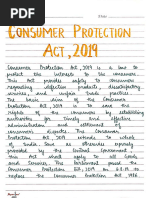 CONSUMER PROTECTION
ACT, 2019
Consumer Protection Act, 2019 is a law to
protect the interests to the consumers.
This Act provides safety to consumers
regarding defective products, dissatisfactory
services, and unfair trade practices.
The basic aim of the Consumer
Protection Act, 2019 is to save the
rights of the consumers by establishing
authorities for timely and effective
administration and settlement of
consumers' disputes. The Consumer Protection
Act, 2019 extends to the whole
of India. Save as otherwise expressly
provided by the Central Government
this Act shall apply to all Goods
and Services. The Parliament passed the
Consumer Protection Bill, 2019 on 6.8.19 to
replace the Consumer Protection Act, 1986